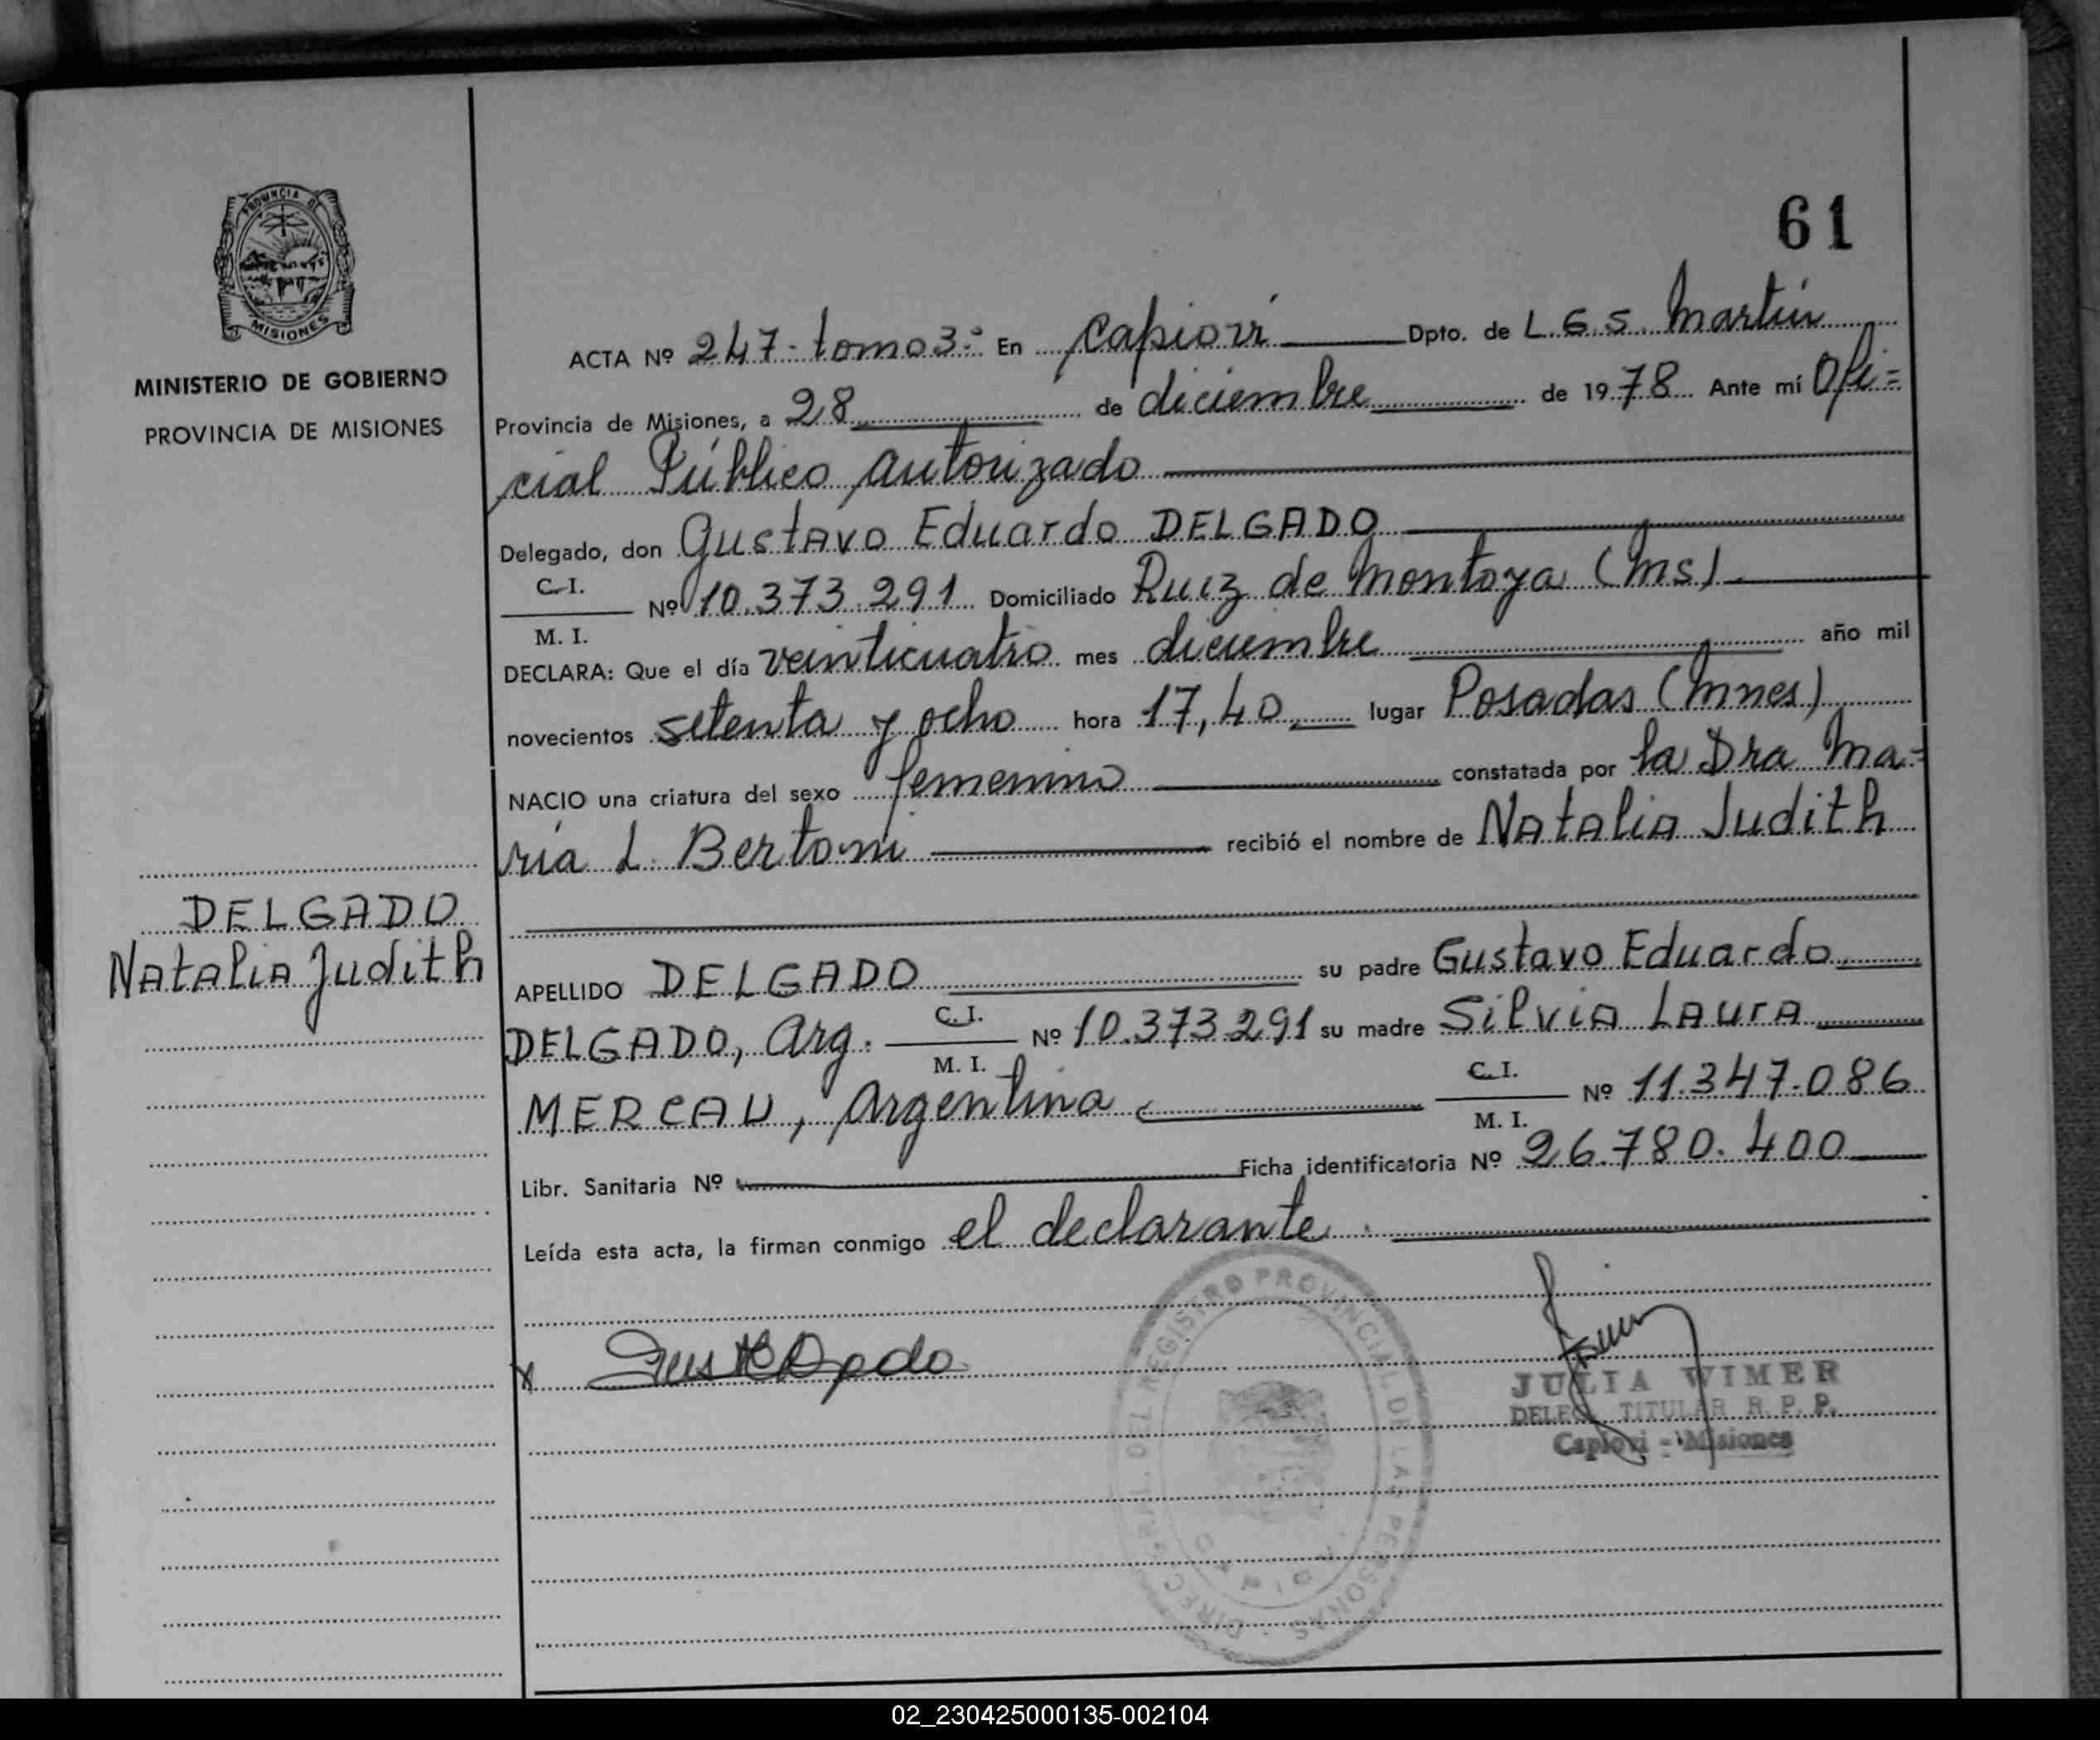 PROVINCIA DE
MISIONES
MINISTERIO DE GOBIERNO
PROVINCIA DE MISIONES
61
ACTA Nº 247 - tomo 3º En Capioví Dpto. de L.G.S. Martín
Provincia de Misiones, a 28 de diciembre de 1978 Ante mí Ofi=
cial Público autorizado
Delegado, don Gustavo Eduardo DELGADO
C.I.
M. I.
Nº 10.373.291 Domiciliado Ruiz de Montoya (Ms)
DECLARA: Que el día veinticuatro mes diciembre año mil
novecientos setenta y ocho hora 17,40 lugar Posadas (Mnes)
NACIO una criatura del sexo femenino constatada por la Dra Ma=
ría L. Bertoni recibió el nombre de Natalia Judith
DELGADO
Natalia Judith
APELLIDO DELGADO su padre Gustavo Eduardo
DELGADO, Arg. C.I. M. I. Nº 10.373.291 su madre Silvia Laura
MERCAU, Argentina C.I. M. I. Nº 11.347.086
Libr. Sanitaria Nº Ficha identificatoria Nº 26.780.400
Leída esta acta, la firman conmigo el declarante.
DIREC. GRAL. DEL REGISTRO PROVINCIAL DE LAS PERSONAS
JULIA WIMER
DELEG. TITULAR R. P. P.
Capioví - Misiones
02_230425000135-002104